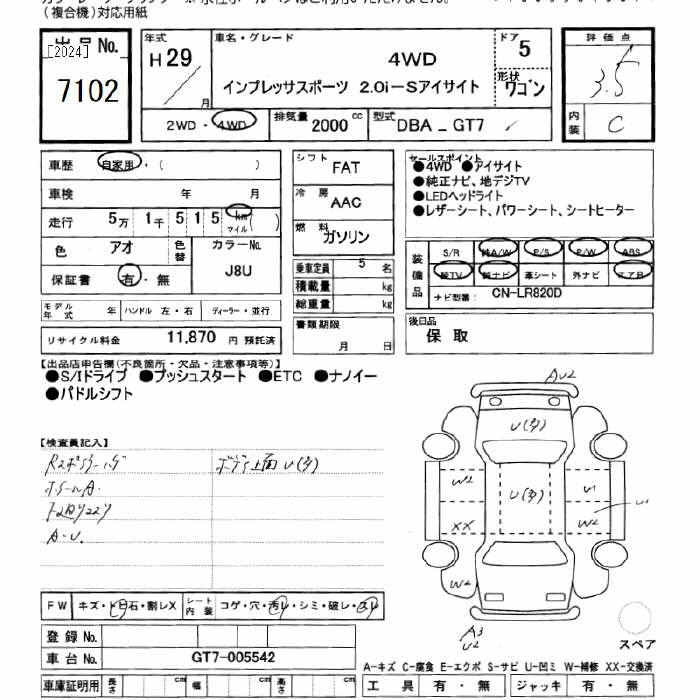 (複合機)対応用紙
出品No.
[2024]
7102
年式
H29
月
車名・グレード
4WD
インプレッサスポーツ 2.0i－Sアイサイト
ドア
5
形状
ワゴン
2WD・4WD
排気量
2000 cc
型式
DBA _ GT7
評価点
3.5
内装
C
車歴 自家用・( )
車検 年 月
走行 5万 1千 5 1 5 km マイル ( )
色 アオ 色替
カラーNo.
J8U
保証書 有・無
モデル年式 年 ハンドル 左・右 ディーラー・並行
リサイクル料金 11,870 円 預託済
シフト
FAT
冷房
AAC
燃料
ガソリン
乗車定員 5 名
積載量 kg
総重量 kg
書類期限
月 日
セールスポイント
●4WD ●アイサイト
●純正ナビ、地デジTV
●LEDヘッドライト
●レザーシート、パワーシート、シートヒーター
装備品
S/R 純A/W P/S P/W ABS
純TV 純ナビ 革シート 外ナビ エアB
ナビ型番: CN-LR820D
後日品
保 取
【出品店申告欄(不良箇所・欠品・注意事項等)】
●S/Iドライブ ●プッシュスタート ●ETC ●ナノイー
●パドルシフト
【検査員記入】
ボデー上面 U(多)
A・U.
AU2
U(多)
U(多)
W2
U1
U1
W2
XX
W2
A3
U2
スペア
FW キズ・トビ石・割レX
シート内装 コゲ・穴・汚レ・シミ・破レ・スレ
登録No.
車台No. GT7-005542
車庫証明用 長さ cm 幅 cm 高さ cm
A-キズ C-腐食 E-エクボ S-サビ U-凹ミ W-補修 XX-交換済
工具 有・無 ジャッキ 有・無